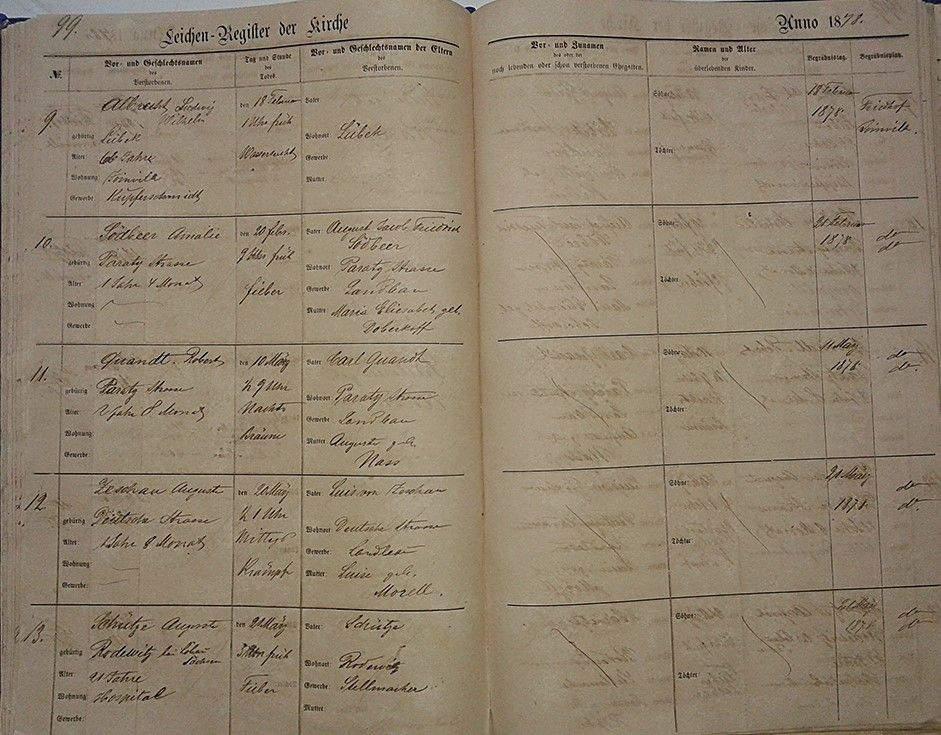 99.
Leichen-Register der Kirche
Anno 1878.
№
Vor- und Geschlechtsnamen
des
Verstorbenen.
Tag und Stunde
des
Todes
Vor- und Geschlechtsnamen der Eltern
des
Verstorbenen.
Vor- und Zunamen
des oder der
noch lebenden oder schon verstorbenen Ehegatten.
Namen und Alter
der
überlebenden Kinder.
Begräbnisstag.
Begräbnissplatz.
9.
Albrecht Ludwig
Wilhelm
gebürtig Lübek
Alter 66 Jahre
Wohnung Joinvile
Gewerbe Kupferschmidt
den 18 Februar
1 Uhr früh
Wassersucht
Vater
Wohnort Lübek
Gewerbe
Mutter
Söhne:
Töchter
18 Februar
1878
Friedhof
Joinvile.
10.
Södbeer Amalie
gebürtig Paraty Strasse
Alter: 1 Jahr 4 Monat
Wohnung:
Gewerbe
den 20 febr.
9 Uhr früh
fieber
Vater: August Jacob Friedrich
Södbeer
Wohnort Paraty Strasse
Gewerbe Landbau
Mutter Maria Eliesabet geb.
Doberkoff
Söhne:
Töchter:
21 Februar
1878
do
do
11.
Quandt. Robert
gebürtig Paraty Strasse
Alter: 2 Jahr 8 Monat
Wohnung:
Gewerbe:
den 10 März
9 Uhr
Nachts
bräune
Vater Carl Quandt
Wohnort Paraty Strasse
Gewerbe Landbau
Mutter Auguste geb.
Nass
Söhne:
Töchter
11 März
1878
do
do.
12
Zeschau August
gebürtig Deutsche Strasse
Alter: 1 Jahr 8 Monat
Wohnung:
Gewerbe:
den
März
1 Uhr
Mittags
Krämpfe
Vater: Zeschau
Wohnort Deutsche Strasse
Gewerbe: Landbau
Mutter: Luise geb.
Morell.
Söhne:
Töchter
März
1878
do
dt.
13.
Schütze Auguste
gebürtig Rodewitz bei Löbau
Sachsen
Alter: 21 Jahre
Wohnung Hospital
Gewerbe:
den
März
3 Uhr früh
Fieber
Vater: Schütze
Wohnort: Rodewitz
Gewerbe: Stellmacher
Mutter:
Söhne:
Töchter
März
1878
do
do